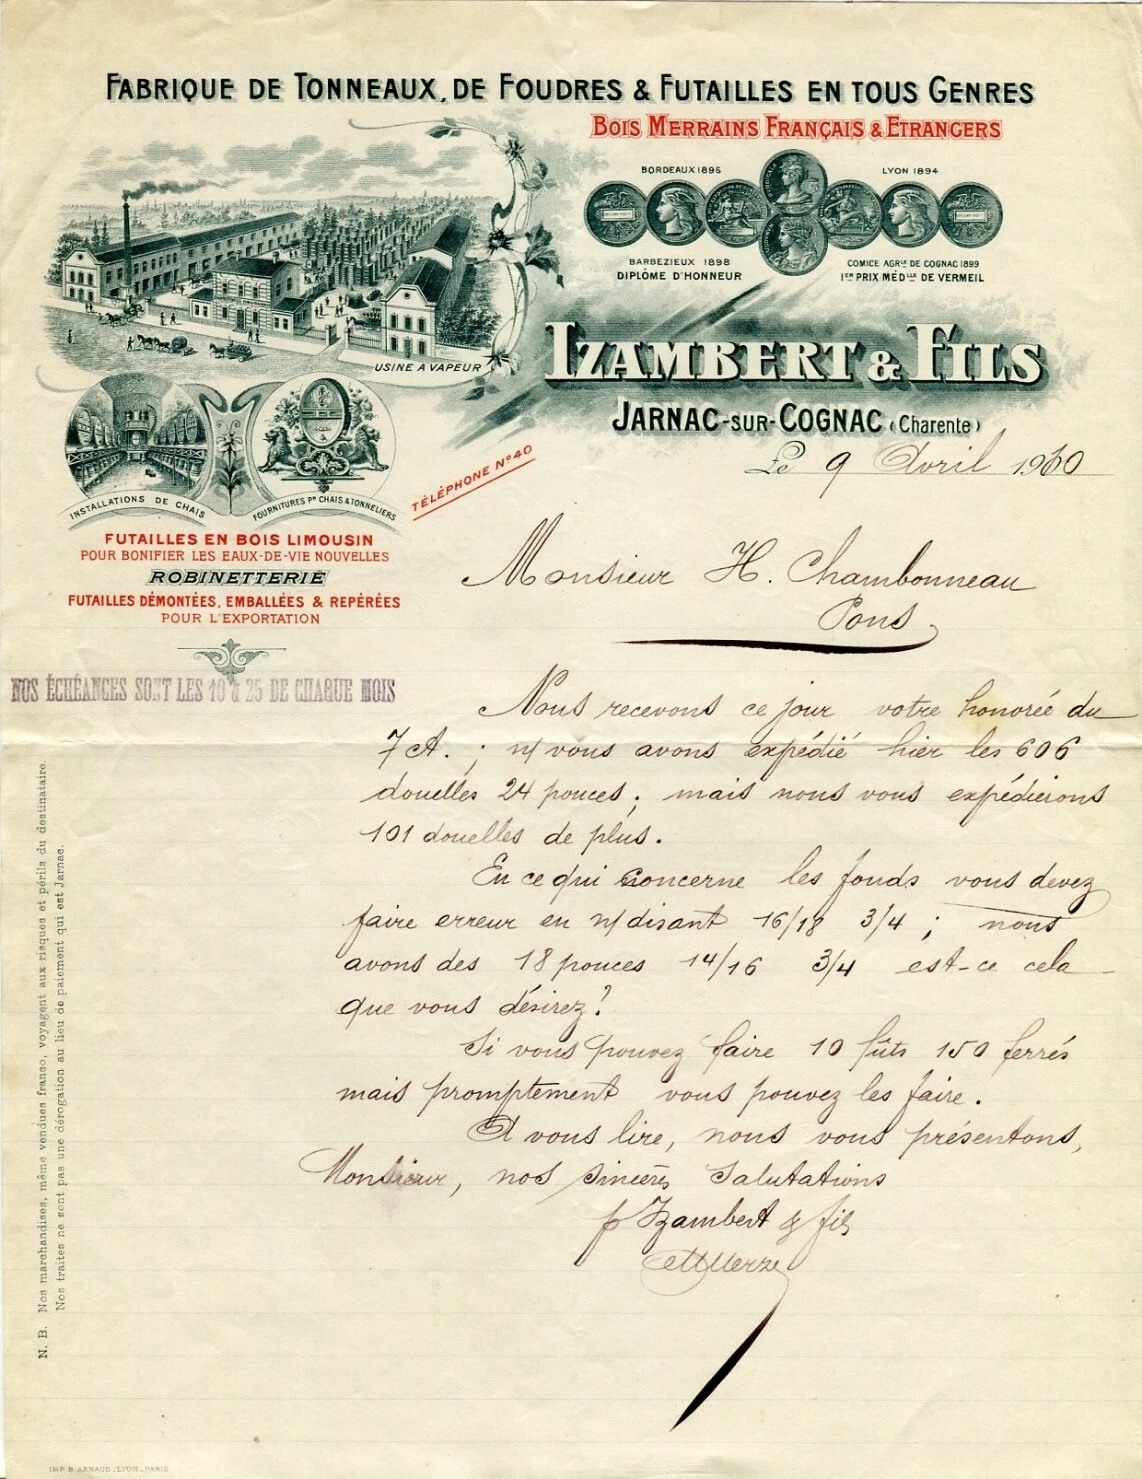 FABRIQUE DE TONNEAUX, DE FOUDRES & FUTAILLES EN TOUS GENRES
BOIS MERRAINS FRANÇAIS & ETRANGERS
BORDEAUX 1895
LYON 1894
BARBEZIEUX 1898
DIPLÔME D'HONNEUR
COMICE AGRLE DE COGNAC 1899
1ER PRIX MÉDLLE DE VERMEIL
USINE A VAPEUR
IZAMBERT & FILS
JARNAC-SUR-COGNAC (Charente)
Le 9 Avril 1910
TÉLÉPHONE No 40
INSTALLATIONS DE CHAIS
FOURNITURES PR CHAIS & TONNELIERS
FUTAILLES EN BOIS LIMOUSIN
POUR BONIFIER LES EAUX-DE-VIE NOUVELLES
ROBINETTERIE
FUTAILLES DÉMONTÉES, EMBALLÉES & REPÉRÉES
POUR L'EXPORTATION
NOS ÉCHÉANCES SONT LES 10 & 25 DE CHAQUE MOIS
Monsieur H. Chambonneau
Pons
Nous recevons ce jour votre honorée du
7 A. ; n/ vous avons expédié hier les 606
douelles 24 pouces ; mais nous vous expédierons
101 douelles de plus.
En ce qui concerne les fonds vous devez
faire erreur en n/ disant 16/18 3/4 ; nous
avons des 18 pouces 14/16 3/4 est-ce cela
que vous désirez ?
Si vous pouvez faire 10 fûts 150 ferrés
mais promptement vous pouvez les faire.
A vous lire, nous vous présentons,
Monsieur, nos sincères salutations
p Izambert & fils
N. B. Nos marchandises, même vendues franco, voyagent aux risques et périls du destinataire.
Nos traites ne sont pas une dérogation au lieu de paiement qui est Jarnac.
IMP. B. ARNAUD, LYON_PARIS